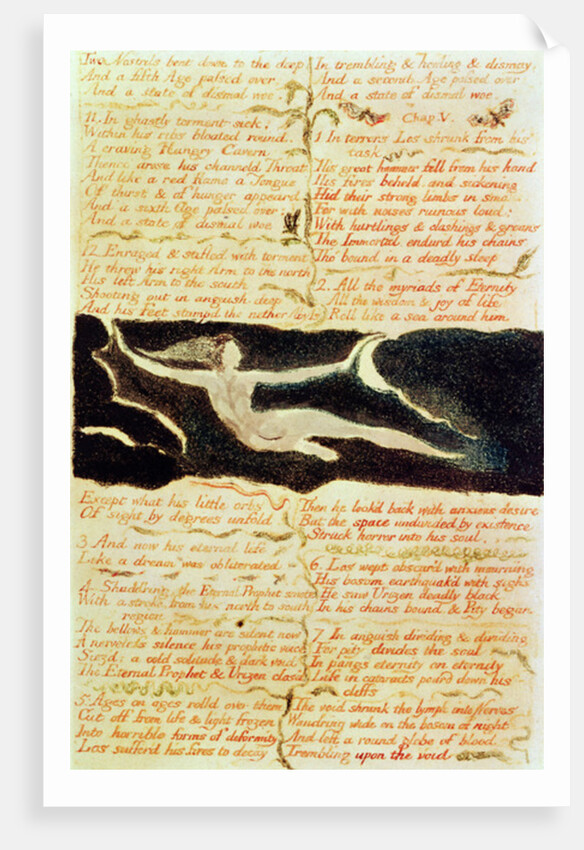 Two Nostrils bent down to the deep
And a fifth Age passed over.
And a state of dismal woe.
11. In ghastly torment sick:
Within his ribs bloated round.
A craving Hungry Cavern.
Thence arose his channeld Throat
And like a red flame a Tongue
Of thirst & of hunger appeard
And a sixth Age passed over:
And a state of dismal woe
12. Enraged & stifled with torment
He threw his right Arm to the north
His left Arm to the south
Shooting out in anguish deep
And his Feet stampd the nether Abyss
In trembling & howling & dismay.
And a second Age passed over
And a state of dismal woe.
Chap. V.
1. In terrors Los shrunk from his
task:
His great hammer fell from his hand
His fires beheld, and sickening
Hid their strong limbs in smoke
For with noises ruinous loud:
With hurtlings & clashings & groans
The Immortal endurd his chains
Tho' bound in a deadly sleep
2. All the myriads of Eternity
All the wisdom & joy of life
Roll like a sea around him
Except what his little orbs
Of sight by degrees unfold
3. And now his eternal life
Like a dream was obliterated
4. Shudd'ring, the Eternal Prophet smote
With a stroke, from his north to south
region
The bellows & hammer are silent now
A nerveless silence his prophetic voice
Siezd: a cold solitude & dark void
The Eternal Prophet & Urizen closd
5. Ages on ages rolld over them
Cut off from life & light frozen
Into horrible forms of deformity
Los sufferd his fires to decay
Then he look'd back with anxious desire
But the space undivided by existence
Struck horror into his soul.
6. Los wept obscur'd with mourning
His bosom earthquak'd with sighs
He saw Urizen deadly black
In his chains bound & Pity began
7. In anguish dividing & dividing
For pity divides the soul
In pangs eternity on eternity
Life in cataracts pourd down his
cliffs
The void shrunk the lymph into Nerves
Wandring wide on the bosom of night
And left a round globe of blood
Trembling upon the void